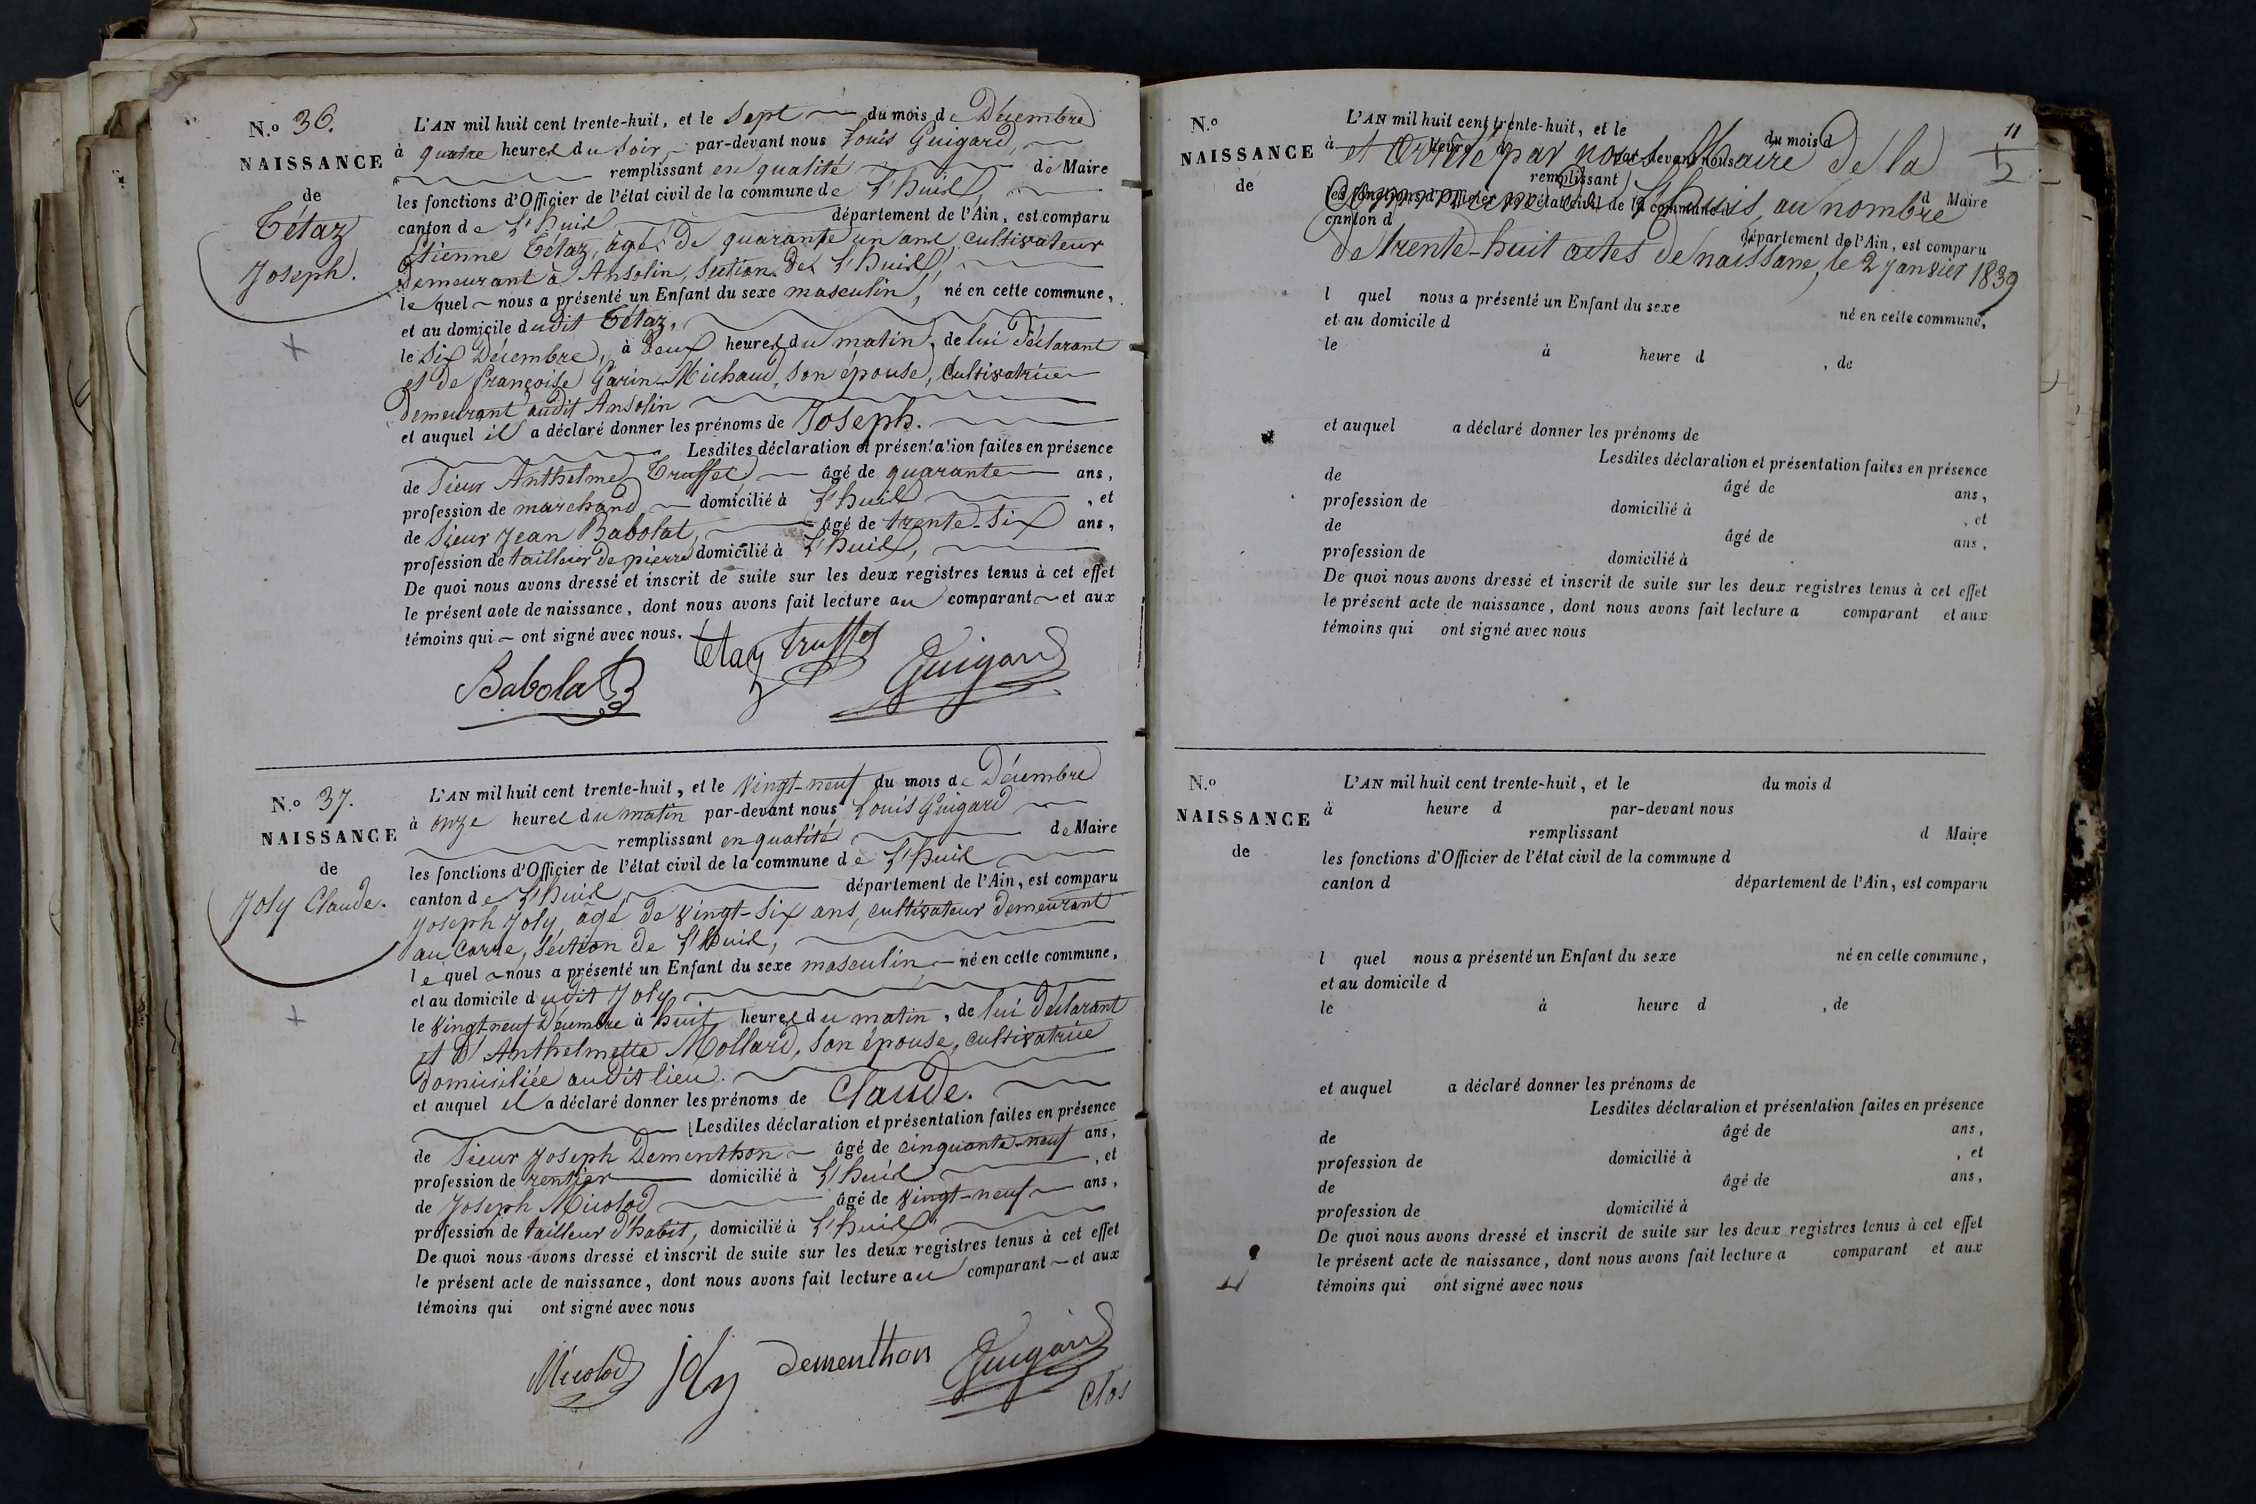 N.º 36.
NAISSANCE
de
Tétaz
Joseph.
L'AN mil huit cent trente-huit, et le sept du mois de Décembre
à quatre heures du soir, par-devant nous Louis Guigard,
remplissant en qualité de Maire
les fonctions d'Officier de l'état civil de la commune de L'huis
canton de L'huis département de l'Ain, est comparu
Etienne Tétaz, âgé de quarante un ans, cultivateur
demeurant à Ansolin, section de L'huis,
lequel nous a présenté un Enfant du sexe masculin, né en cette commune,
et au domicile dudit Tétaz,
le six Décembre, à deux heures du matin, de lui déclarant
et de françoise Garin-Michaud, son épouse, cultivatrice
demeurant audit Ansolin
et auquel il a déclaré donner les prénoms de Joseph.
Lesdites déclaration et présentation faites en présence
de sieur Anthelme Truffet âgé de quarante ans,
profession de marchand domicilié à L'huis, et
de sieur Jean Babolat, âgé de trente-six ans,
profession de tailleur de pierre domicilié à L'huis,
De quoi nous avons dressé et inscrit de suite sur les deux registres tenus à cet effet
le présent acte de naissance, dont nous avons fait lecture au comparant et aux
témoins qui ont signé avec nous.
tetaz truffet
Babolat Guigard
N.º 37.
NAISSANCE
de
Joly Claude.
L'AN mil huit cent trente-huit, et le vingt-neuf du mois de Décembre
à onze heures du matin par-devant nous Louis Guigard
remplissant en qualité de Maire
les fonctions d'Officier de l'état civil de la commune de L'huis
canton de L'huis département de l'Ain, est comparu
Joseph Joly, âgé de vingt-six ans, cultivateur demeurant
au, section de L'huis,
lequel nous a présenté un Enfant du sexe masculin né en cette commune,
et au domicile dudit Joly
le vingt neuf Décembre à huit heures du matin, de lui déclarant
et d'Anthelmette Mollard, son épouse, cultivatrice
domiciliée audit lieu.
et auquel il a déclaré donner les prénoms de Claude.
Lesdites déclaration et présentation faites en présence
de sieur Joseph Dementhon âgé de cinquante-neuf ans,
profession de rentier domicilié à L'huis, et
de Joseph Micolod âgé de vingt-neuf ans,
profession de tailleur d'habit, domicilié à L'huis
De quoi nous avons dressé et inscrit de suite sur les deux registres tenus à cet effet
le présent acte de naissance, dont nous avons fait lecture au comparant et aux
témoins qui ont signé avec nous
Micolod Joly dementhon Guigard
Clos
11
2
N.º
NAISSANCE
de
L'AN mil huit cent trente-huit, et le du mois d
à heure d par-devant nous
et arrêté par nous Maire de la
remplissant d Maire
les fonctions d'Officier de l'état civil de la commune d
Commune de L'huis, au nombre
canton d département de l'Ain, est comparu
de trente-huit actes de naissance, le 2 Janvier 1839
l quel nous a présenté un Enfant du sexe né en cette commune,
et au domicile d
le à heure d , de
et auquel a déclaré donner les prénoms de
Lesdites déclaration et présentation faites en présence
de âgé de ans,
profession de domicilié à , et
de âgé de ans,
profession de domicilié à
De quoi nous avons dressé et inscrit de suite sur les deux registres tenus à cet effet
le présent acte de naissance, dont nous avons fait lecture a comparant et aux
témoins qui ont signé avec nous
N.º
NAISSANCE
de
L'AN mil huit cent trente-huit, et le du mois d
à heure d par-devant nous
remplissant d Maire
les fonctions d'Officier de l'état civil de la commune d
canton d département de l'Ain, est comparu
l quel nous a présenté un Enfant du sexe né en cette commune,
et au domicile d
le à heure d , de
et auquel a déclaré donner les prénoms de
Lesdites déclaration et présentation faites en présence
de âgé de ans,
profession de domicilié à , et
de âgé de ans,
profession de domicilié à
De quoi nous avons dressé et inscrit de suite sur les deux registres tenus à cet effet
le présent acte de naissance, dont nous avons fait lecture a comparant et aux
témoins qui ont signé avec nous